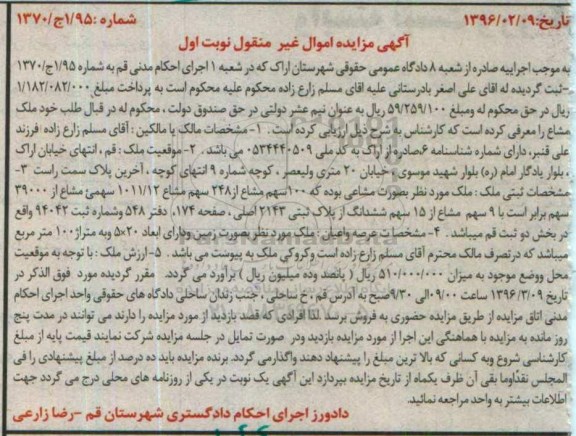 تاریخ:۱۳۹۶/۰۲/۰۹ شماره :۱/۹۵ج/۱۳۷۰
آگهی مزایده اموال غیر منقول نوبت اول
به موجب اجراییه صادره از شعبه ۸ دادگاه عمومی حقوقی شهرستان اراک که در شعبه ۱ اجرای احکام مدنی قم به شماره ۱/۹۵ج/۱۳۷۰
-ثبت گردیده له اقای علی اصغر بادرستانی علیه اقای مسلم زارع زاده محکوم علیه محکوم است به پرداخت مبلغ ۱/۱۸۲/۰۸۲/۰۰۰
ریال در حق محکوم له ومبلغ ۵۹/۲۵۹/۱۰۰ ریال به عنوان نیم عشر دولتی در حق صندوق دولت ، محکوم له در قبال طلب خود ملک
مشاع را معرفی کرده است که کارشناس به شرح ذیل ارزیابی کرده است . ۱- مشخصات مالک یا مالکین : آقای مسلم زارع زاده :فرزند
علی قنبر، دارای شماره شناسنامه ۶صادره از اراک به کد ملی ۰۵۳۴۴۴۰۵۰۹ می باشد . ۲- موقعیت ملک : قم ، انتهای خیابان اراک
، بلوار یادگار امام (ره) بلوار شهید موسوی ، خیابان ۲۰ متری ولیعصر ، کوچه شماره ۹ انتهای کوچه ، آخرین پلاک سمت راست ۳-
مشخصات ثبتی ملک : ملک مورد نظر بصورت مشاعی بوده که ۱۰۰سهم مشاع از۲۴۸ سهم مشاع ۱۰۱۱/۱۲ سهمی مشاع از ۳۹۰۰۰
سهم برابر است با ۹ سهم مشاع از ۱۵ سهم ششدانگ از پلاک ثبتی ۲۱۴۳ اصلی ، صفحه ۱۷۴، دفتر ۵۴۸ وشماره ثبت ۹۴۰۴۲ واقع
در بخش دو ثبت قم میباشد . ۴- مشخصات عرصه واعیان : ملک مورد نظر بصورت زمین ودارای ابعاد ۲۰×۵ وبه متراژ۱۰۰ متر مربع
میباشد که در تصرف مالک محترم آقای مسلم زارع زاده است وکروکی ملک به پیوست می باشد . ۵-ارزش ملک : با توجه به موقعیت
محل ووضع موجود به میزان ۵۱۰/۰۰۰/۰۰۰ ریال ( پانصد وده میلیون ریال ) برآورد می گردد. مقرر گردیده مورد فوق الذکر در
تاریخ ۱۳۹۶/۳/۰۹ ساعت ۰۹/۰۰الی ۹/۳۰صبح به آدرس قم ، خ ساحلی ، جنب زندان ساحلی دادگاه های حقوقی واحد اجرای احکام
مدنی اتاق مزایده از طریق مزایده حضوری به فروش برسد. لذا افرادی که قصد بازدید از مورد مزایده را دارند می توانند در مدت پنج
روز مانده به مزایده با هماهنگی این اجرا از مورد مزایده بازدید ودر صورت تمایل در جلسه مزایده شرکت نمایند قیمت پایه از مبلغ
کارشناسی شروع وبه کسانی که بالا ترین مبلغ را پیشنهاد دهند واگذارمی گردد. برنده مزایده باید ده درصد از مبلغ پیشنهادی را فی
المجلس نقدًاوما بقی آن ظرف یکماه از تاریخ مزایده بپردازد این آگهی یک نوبت در یکی از روزنامه های محلی درج می گردد جهت
اطلاعات بیشتر به واحد مراجعه نمائید.
دادورز اجرای احکام دادگستری شهرستان قم -رضا زارعی